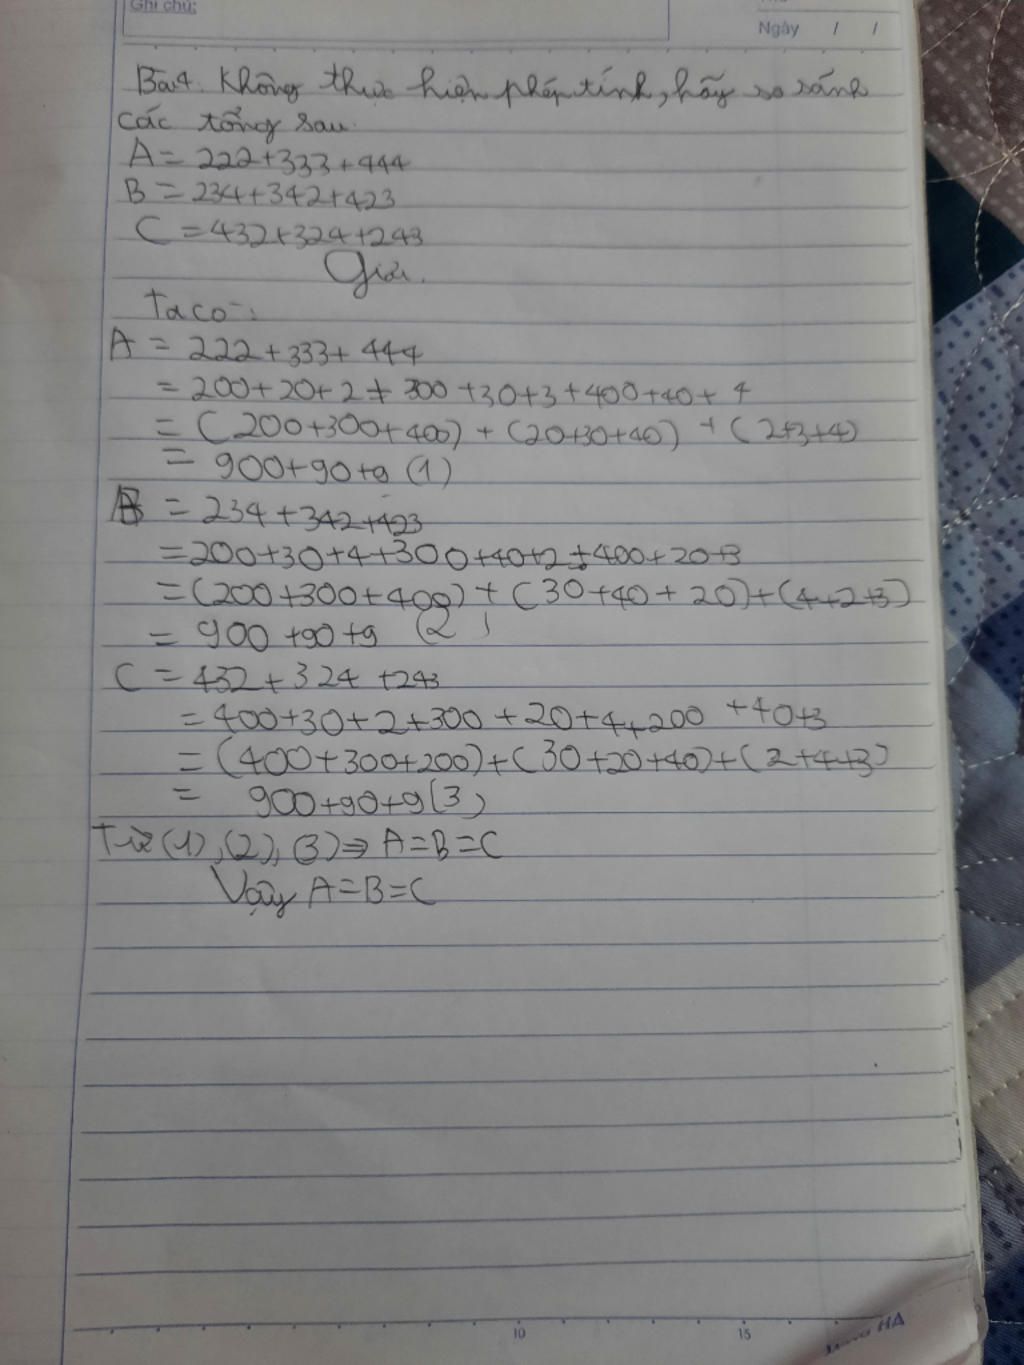 Ghi chú:
Ngày / /
Bài 4. Không thực hiện phép tính, hãy so sánh
các tổng sau.
A = 222+333+444
B = 234+342+423
C = 432+324+243
Giải.
Ta có:
A = 222+333+444
= 200+20+2+300+30+3+400+40+4
= (200+300+400)+(20+30+40)+(2+3+4)
= 900+90+9 (1)
B = 234+342+423
=200+30+4+300+40+2+400+20+3
=(200+300+400)+(30+40+20)+(4+2+3)
= 900+90+9 (2)
C = 432+324+243
=400+30+2+300+20+4+200+40+3
= (400+300+200)+(30+20+40)+(2+4+3)
= 900+90+9(3)
Từ (1),(2),(3)⇒ A=B=C
Vậy A=B=C
10 15 HA